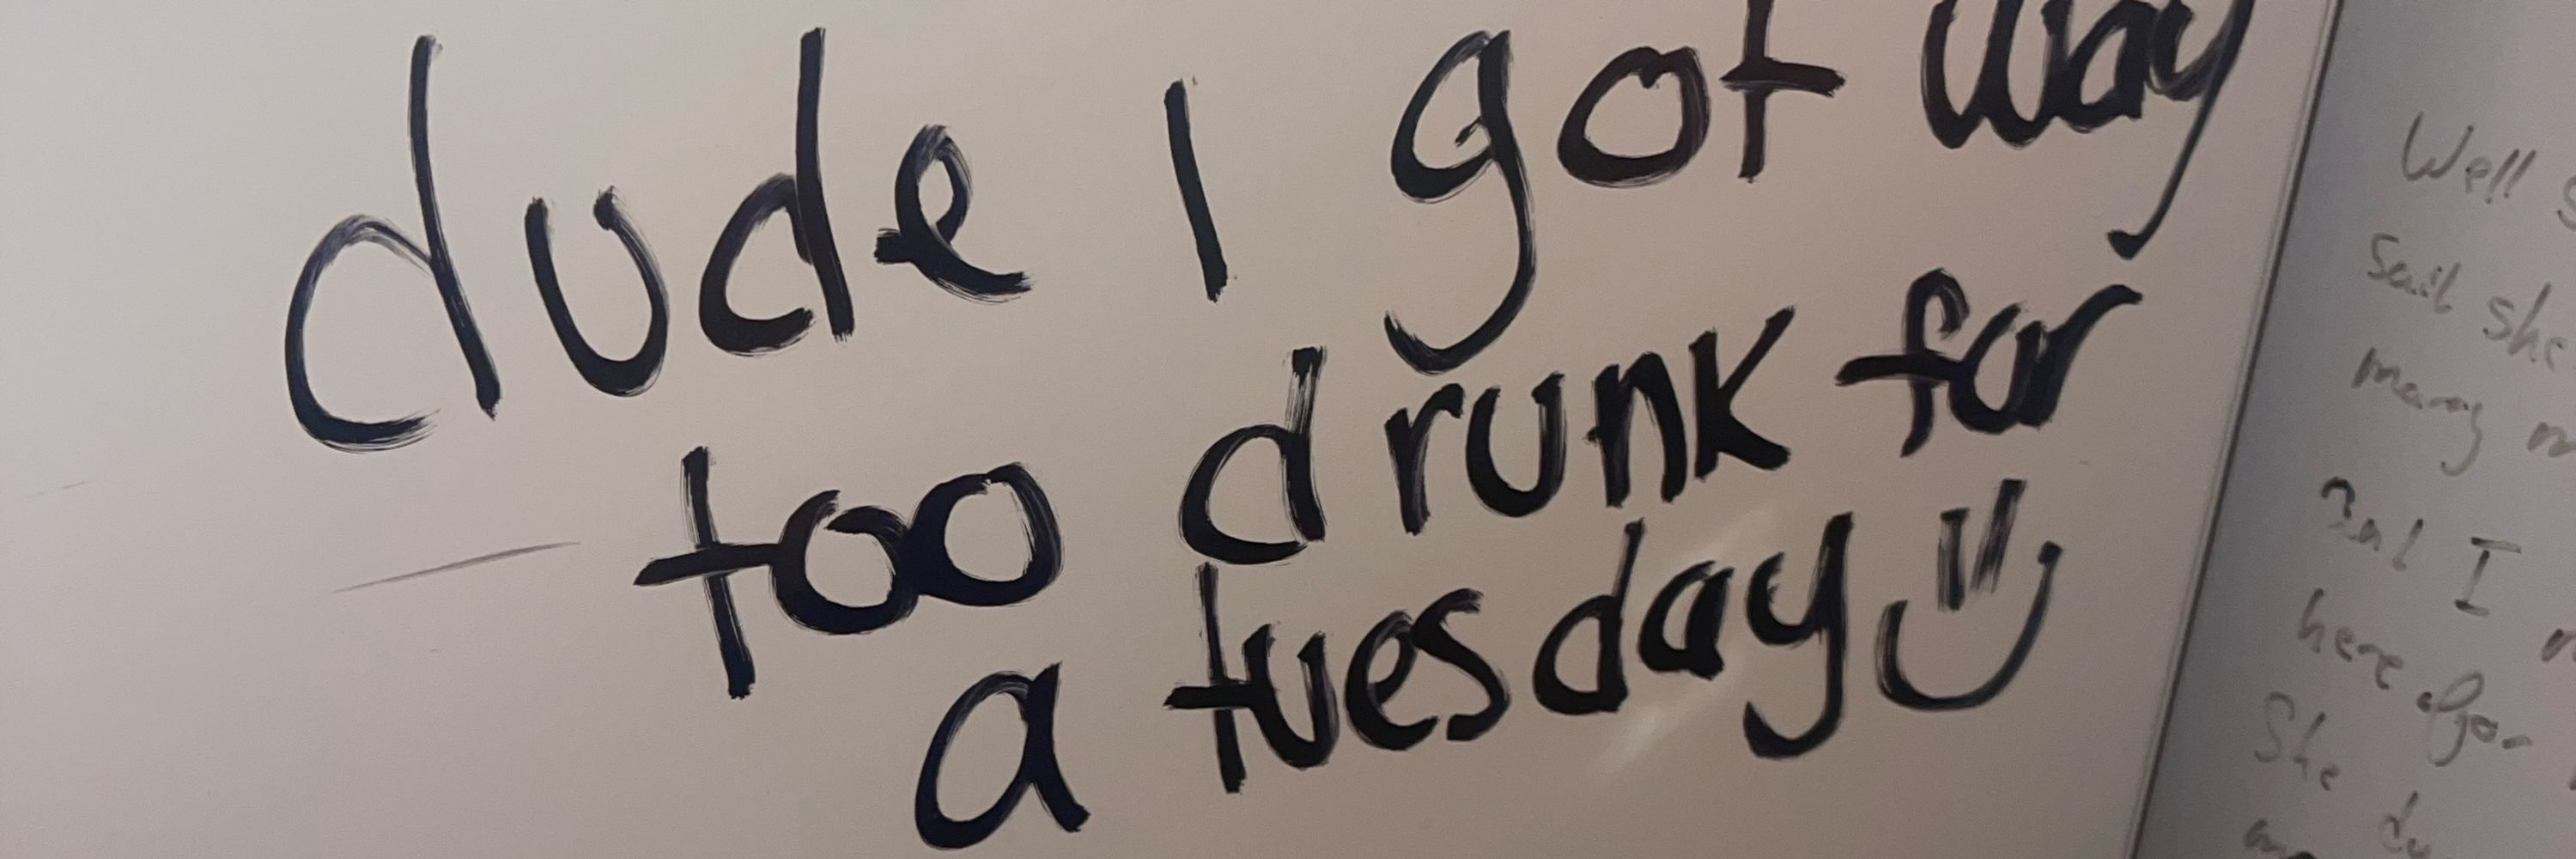 dude I got way
too drunk for
a tuesday
Well
Said she
many
But I
here for
She